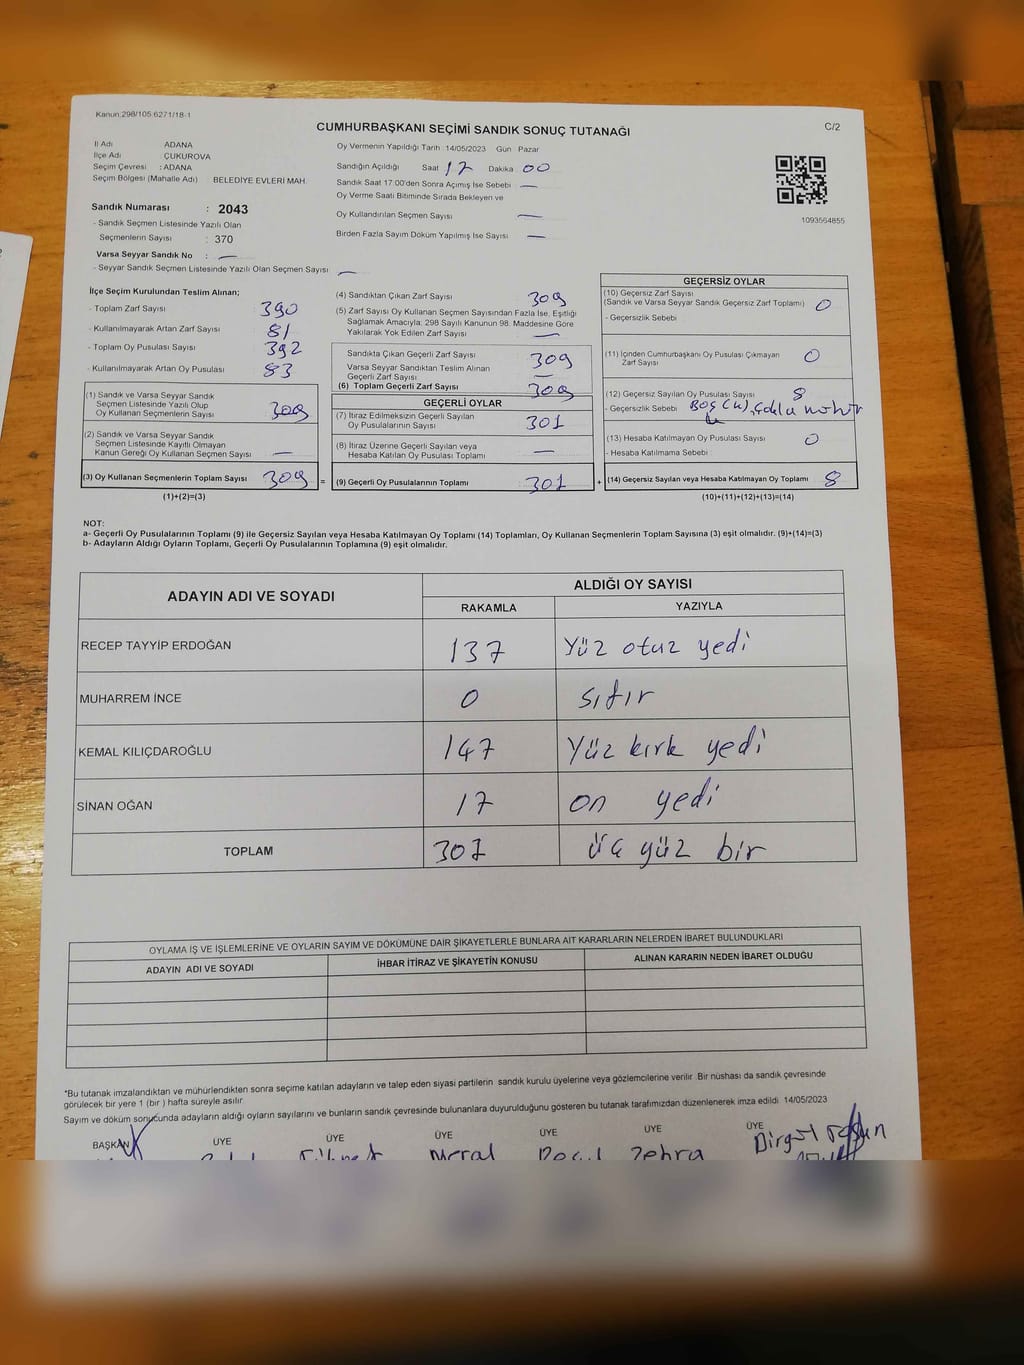 Kanun:298/105 6271/18-1
C/2
CUMHURBAŞKANI SEÇİMİ SANDIK SONUÇ TUTANAĞI
İl Adı ADANA
İlçe Adı ÇUKUROVA
Seçim Çevresi : ADANA
Seçim Bölgesi (Mahalle Adı) BELEDİYE EVLERİ MAH.
Sandık Numarası : 2043
- Sandık Seçmen Listesinde Yazılı Olan
Seçmenlerin Sayısı : 370
Varsa Seyyar Sandık No : —
- Seyyar Sandık Seçmen Listesinde Yazılı Olan Seçmen Sayısı —
Oy Vermenin Yapıldığı Tarih :14/05/2023 Gün : Pazar
Sandığın Açıldığı Saat 17 Dakika 00
Sandık Saat 17:00'den Sonra Açımış İse Sebebi —
Oy Verme Saati Bitiminde Sırada Bekleyen ve
Oy Kullandırılan Seçmen Sayısı —
Birden Fazla Sayım Döküm Yapılmış İse Sayısı —
1093564855
İlçe Seçim Kurulundan Teslim Alınan;
- Toplam Zarf Sayısı 390
- Kullanılmayarak Artan Zarf Sayısı 81
- Toplam Oy Pusulası Sayısı 392
- Kullanılmayarak Artan Oy Pusulası 83
(1) Sandık ve Varsa Seyyar Sandık
Seçmen Listesinde Yazılı Olup
Oy Kullanan Seçmenlerin Sayısı 309
(2) Sandık ve Varsa Seyyar Sandık
Seçmen Listesinde Kayıtlı Olmayan
Kanun Gereği Oy Kullanan Seçmen Sayısı —
(3) Oy Kullanan Seçmenlerin Toplam Sayısı 309 =
(1)+(2)=(3)
(4) Sandıktan Çıkan Zarf Sayısı 309
(5) Zarf Sayısı Oy Kullanan Seçmen Sayısından Fazla İse, Eşitliği
Sağlamak Amacıyla; 298 Sayılı Kanunun 98. Maddesine Göre
Yakılarak Yok Edilen Zarf Sayısı —
Sandıkta Çıkan Geçerli Zarf Sayısı 309
Varsa Seyyar Sandıktan Teslim Alınan
Geçerli Zarf Sayısı —
(6) Toplam Geçerli Zarf Sayısı 309
GEÇERLİ OYLAR
(7) İtiraz Edilmeksizin Geçerli Sayılan
Oy Pusulalarının Sayısı 301
(8) İtiraz Üzerine Geçerli Sayılan veya
Hesaba Katılan Oy Pusulası Toplamı —
(9) Geçerli Oy Pusulalarının Toplamı 301 +
GEÇERSİZ OYLAR
(10) Geçersiz Zarf Sayısı
(Sandık ve Varsa Seyyar Sandık Geçersiz Zarf Toplamı) 0
- Geçersizlik Sebebi
(11) İçinden Cumhurbaşkanı Oy Pusulası Çıkmayan
Zarf Sayısı 0
(12) Geçersiz Sayılan Oy Pusulası Sayısı 8
- Geçersizlik Sebebi Boş
(13) Hesaba Katılmayan Oy Pusulası Sayısı 0
- Hesaba Katılmama Sebebi
(14) Geçersiz Sayılan veya Hesaba Katılmayan Oy Toplamı 8
(10)+(11)+(12)+(13)=(14)
NOT:
a- Geçerli Oy Pusulalarının Toplamı (9) ile Geçersiz Sayılan veya Hesaba Katılmayan Oy Toplamı (14) Toplamları, Oy Kullanan Seçmenlerin Toplam Sayısına (3) eşit olmalıdır. (9)+(14)=(3)
b- Adayların Aldığı Oyların Toplamı, Geçerli Oy Pusulalarının Toplamına (9) eşit olmalıdır.
ADAYIN ADI VE SOYADI
ALDIĞI OY SAYISI
RAKAMLA YAZIYLA
RECEP TAYYİP ERDOĞAN 137 Yüz otuz yedi
MUHARREM İNCE 0 sıfır
KEMAL KILIÇDAROĞLU 147 Yüz kırk yedi
SİNAN OĞAN 17 on yedi
TOPLAM 301 üç yüz bir
OYLAMA İŞ VE İŞLEMLERİNE VE OYLARIN SAYIM VE DÖKÜMÜNE DAİR ŞİKAYETLERLE BUNLARA AİT KARARLARIN NELERDEN İBARET BULUNDUKLARI
ADAYIN ADI VE SOYADI
İHBAR İTİRAZ VE ŞİKAYETİN KONUSU
ALINAN KARARIN NEDEN İBARET OLDUĞU
*Bu tutanak imzalandıktan ve mühürlendikten sonra seçime katılan adayların ve talep eden siyasi partilerin sandık kurulu üyelerine veya gözlemcilerine verilir. Bir nüshası da sandık çevresinde
görülecek bir yere 1 (bir ) hafta süreyle asılır.
Sayım ve döküm sonucunda adayların aldığı oyların sayılarını ve bunların sandık çevresinde bulunanlara duyurulduğunu gösteren bu tutanak tarafımızdan düzenlenerek imza edildi. 14/05/2023
BAŞKAN ÜYE ÜYE ÜYE ÜYE ÜYE ÜYE
Meral Zehra